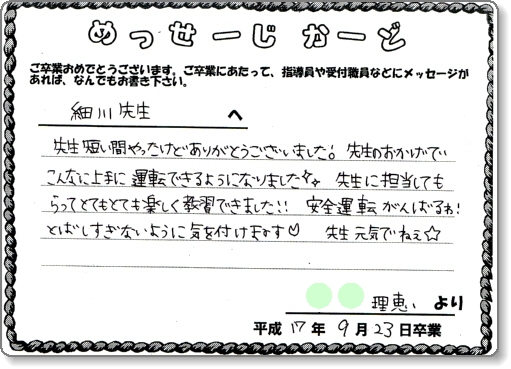 めっせーじかーど
ご卒業おめでとうございます。ご卒業にあたって、指導員や受付職員などにメッセージが
あれば、なんでもお書き下さい。
細川先生 へ
先生短い間やったけどありがとうございました! 先生のおかげでい
こんなに上手に運転できるようになりました☆ 先生に担当しても
らってとてもとても楽しく教習できました!! 安全運転がんばるね!
とばしすぎないように気を付けます♡ 先生元気でいねぇ☆
理恵 より
平成 17 年 9 月 23 日卒業